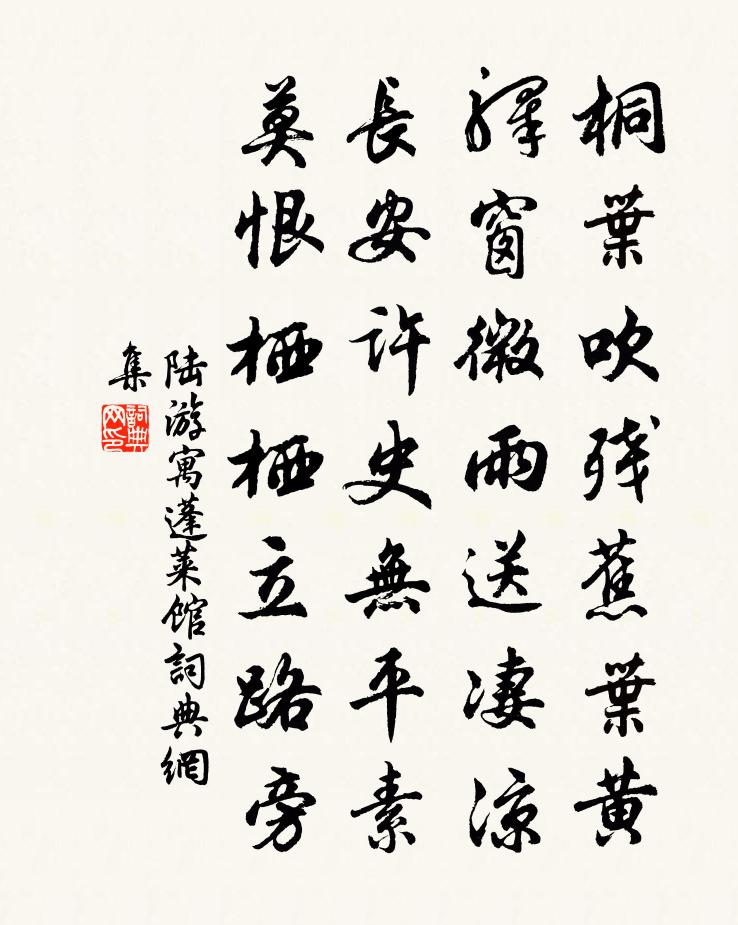 桐葉吹残蕉葉黃
驛窗微雨送淒涼
長安許史無平素
莫恨栖栖立路旁
陸游寓蓬萊館詞典網
集
詞典网印